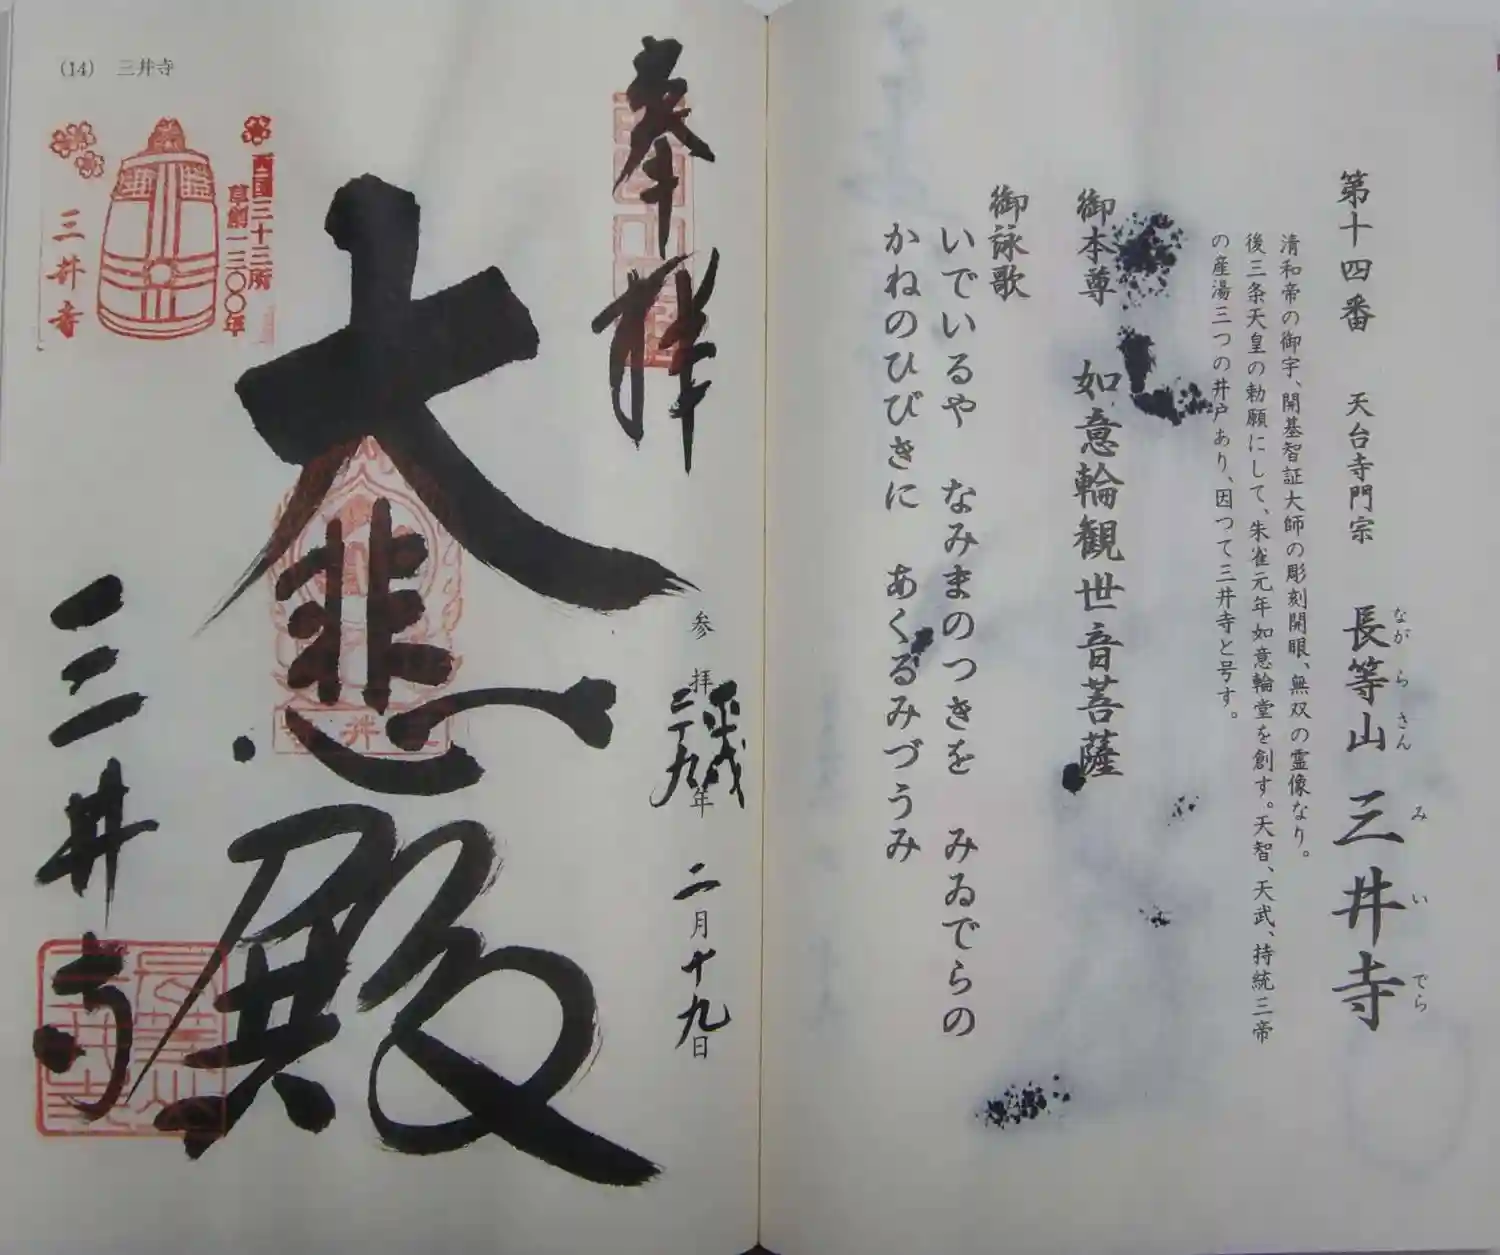 第十四番 天台寺門宗 長等山 三井寺
ながらさん みいでら
清和帝の御宇、開基智証大師の彫刻開眼、無双の霊像なり。
後三条天皇の勅願にして、朱雀元年如意輪堂を創す。天智、天武、持統三帝
の産湯三つの井戸あり、因つて三井寺と号す。
御本尊 如意輪観世音菩薩
御詠歌
いでいるや なみまのつきを みゐでらの
かねのひびきに あくるみづうみ
(14) 三井寺
奉拝
参拝 平成二十九年 二月十九日
大悲殿
三井寺
西国三十三所
草創一三〇〇年
三井寺
三井寺